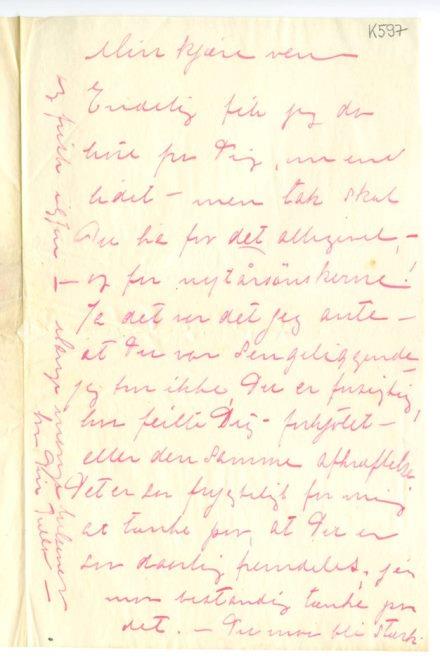 K597
Min kjære ven —
Endelig fik jeg da
høre fra Dig, om end
lidet – men tak skal
Du ha for det alligevel, –
og for nytårsønskerne!
Ja det var det jeg ante –
at Du var sengeliggende –
jeg tror ikke Du er forsigtig,
hva feilte Dig – forkjølet –
eller den samme afkræftelse
Det er så frygteligt for mig
at tænke på, at Du er
så dårlig fremdeles, jeg
må bestandig tænke på
det. – Du må bli stærk
og frisk igjen – Mange mange hilsener
fra Din